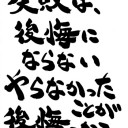 失敗は、
後悔に
ならない
やらなかった
ことが
後悔